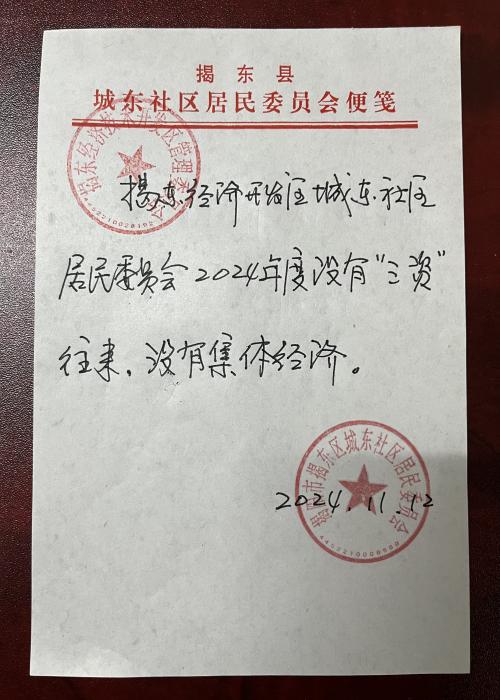 揭东县
城东社区居民委员会便笺
揭东经济技术开发区管理委员会
揭东经济开发区城东社区
居民委员会2024年度没有“三资”
往来，没有集体经济。
揭阳市揭东区城东社区居民委员会
2024.11.12